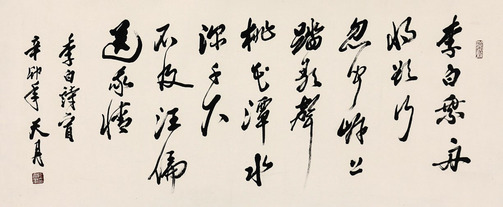 李白乘舟
将欲行
忽闻岸上
踏歌聲
桃花潭水
深千尺
不及汪倫
送我情
李白詩一首
辛卯年天月